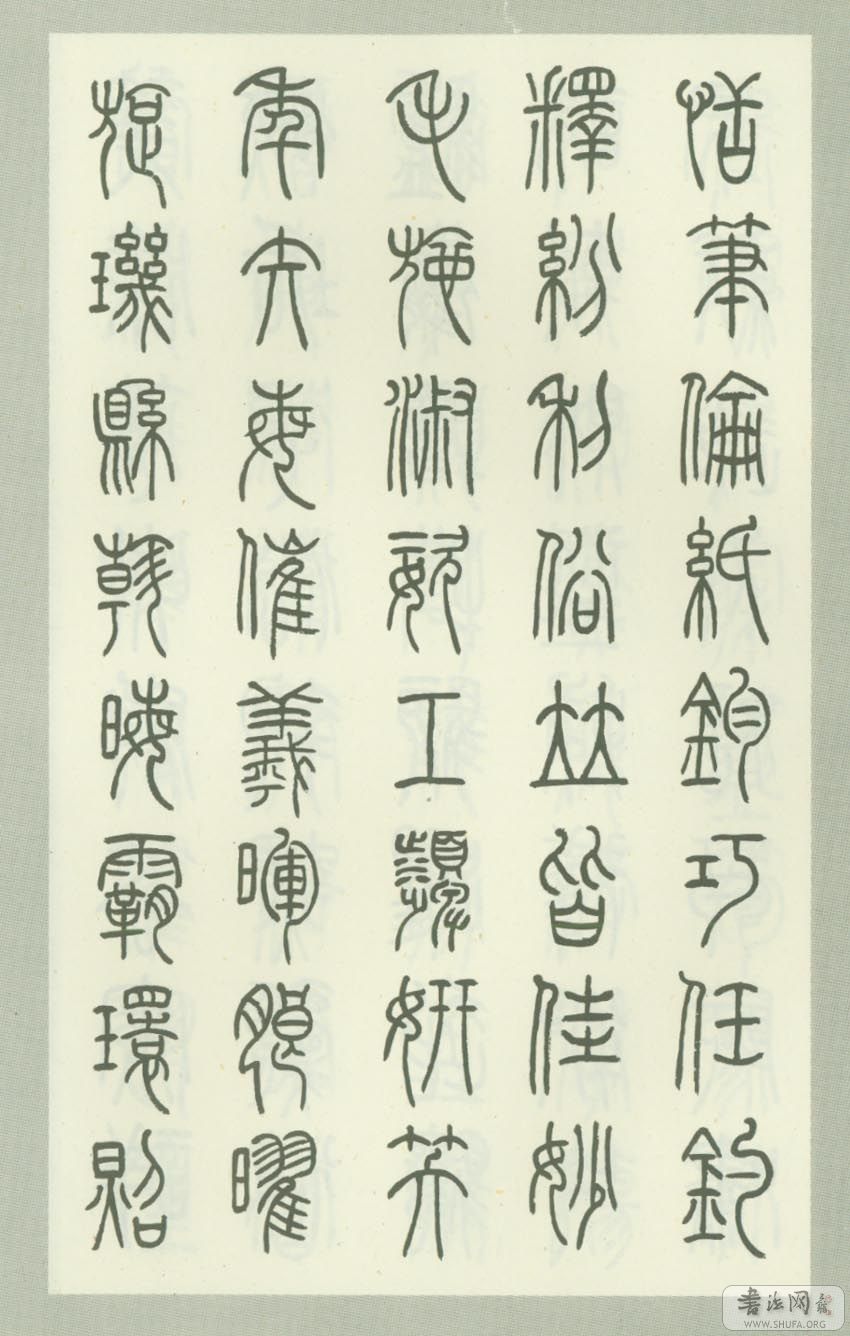 恬筆倫紙鈞巧任釣
釋紛利俗竝皆佳妙
毛施淑姿工顰妍笑
年矢每催羲暉朗曜
旋璣縣斡晦霸環照
書法网
WWW.SHUFA.ORG